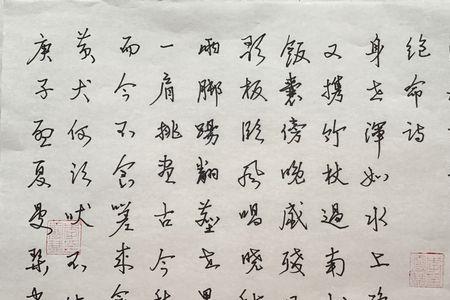 绝命诗
身世浑如水上
又携竹杖过南
饭囊傍晚盛残
歌板临风唱晓
两脚踢翻尘世
一肩挑尽古今
而今不食嗟来食
黄犬何须吠不
庚子孟夏